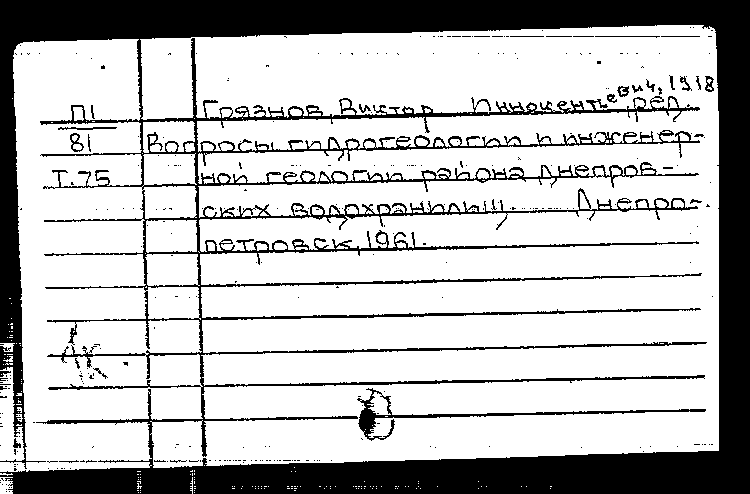 П1 Грязнов, Виктор Иннокентьевич, 1918 ред.
81 Вопросы гидрогеологии и инженер-
Т.75 ной геологии района Днепров-
ских водохранилищ. Днепро-
петровск, 1961.